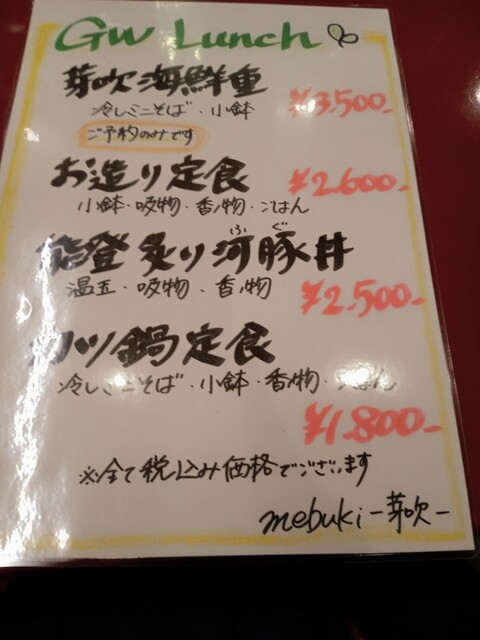 GW Lunch
芽吹海鮮重
¥3,500-
冷しミニそば・小鉢
ご予約のみです
お造り定食
¥2,600-
小鉢・吸物・香の物・ごはん
能登炙り河豚丼
ふぐ
温玉・吸物・香の物
¥2,500-
カツ鍋定食
冷しミニそば・小鉢・香の物・ごはん
¥1,800-
※全て税込み価格でございます
mebuki-芽吹-